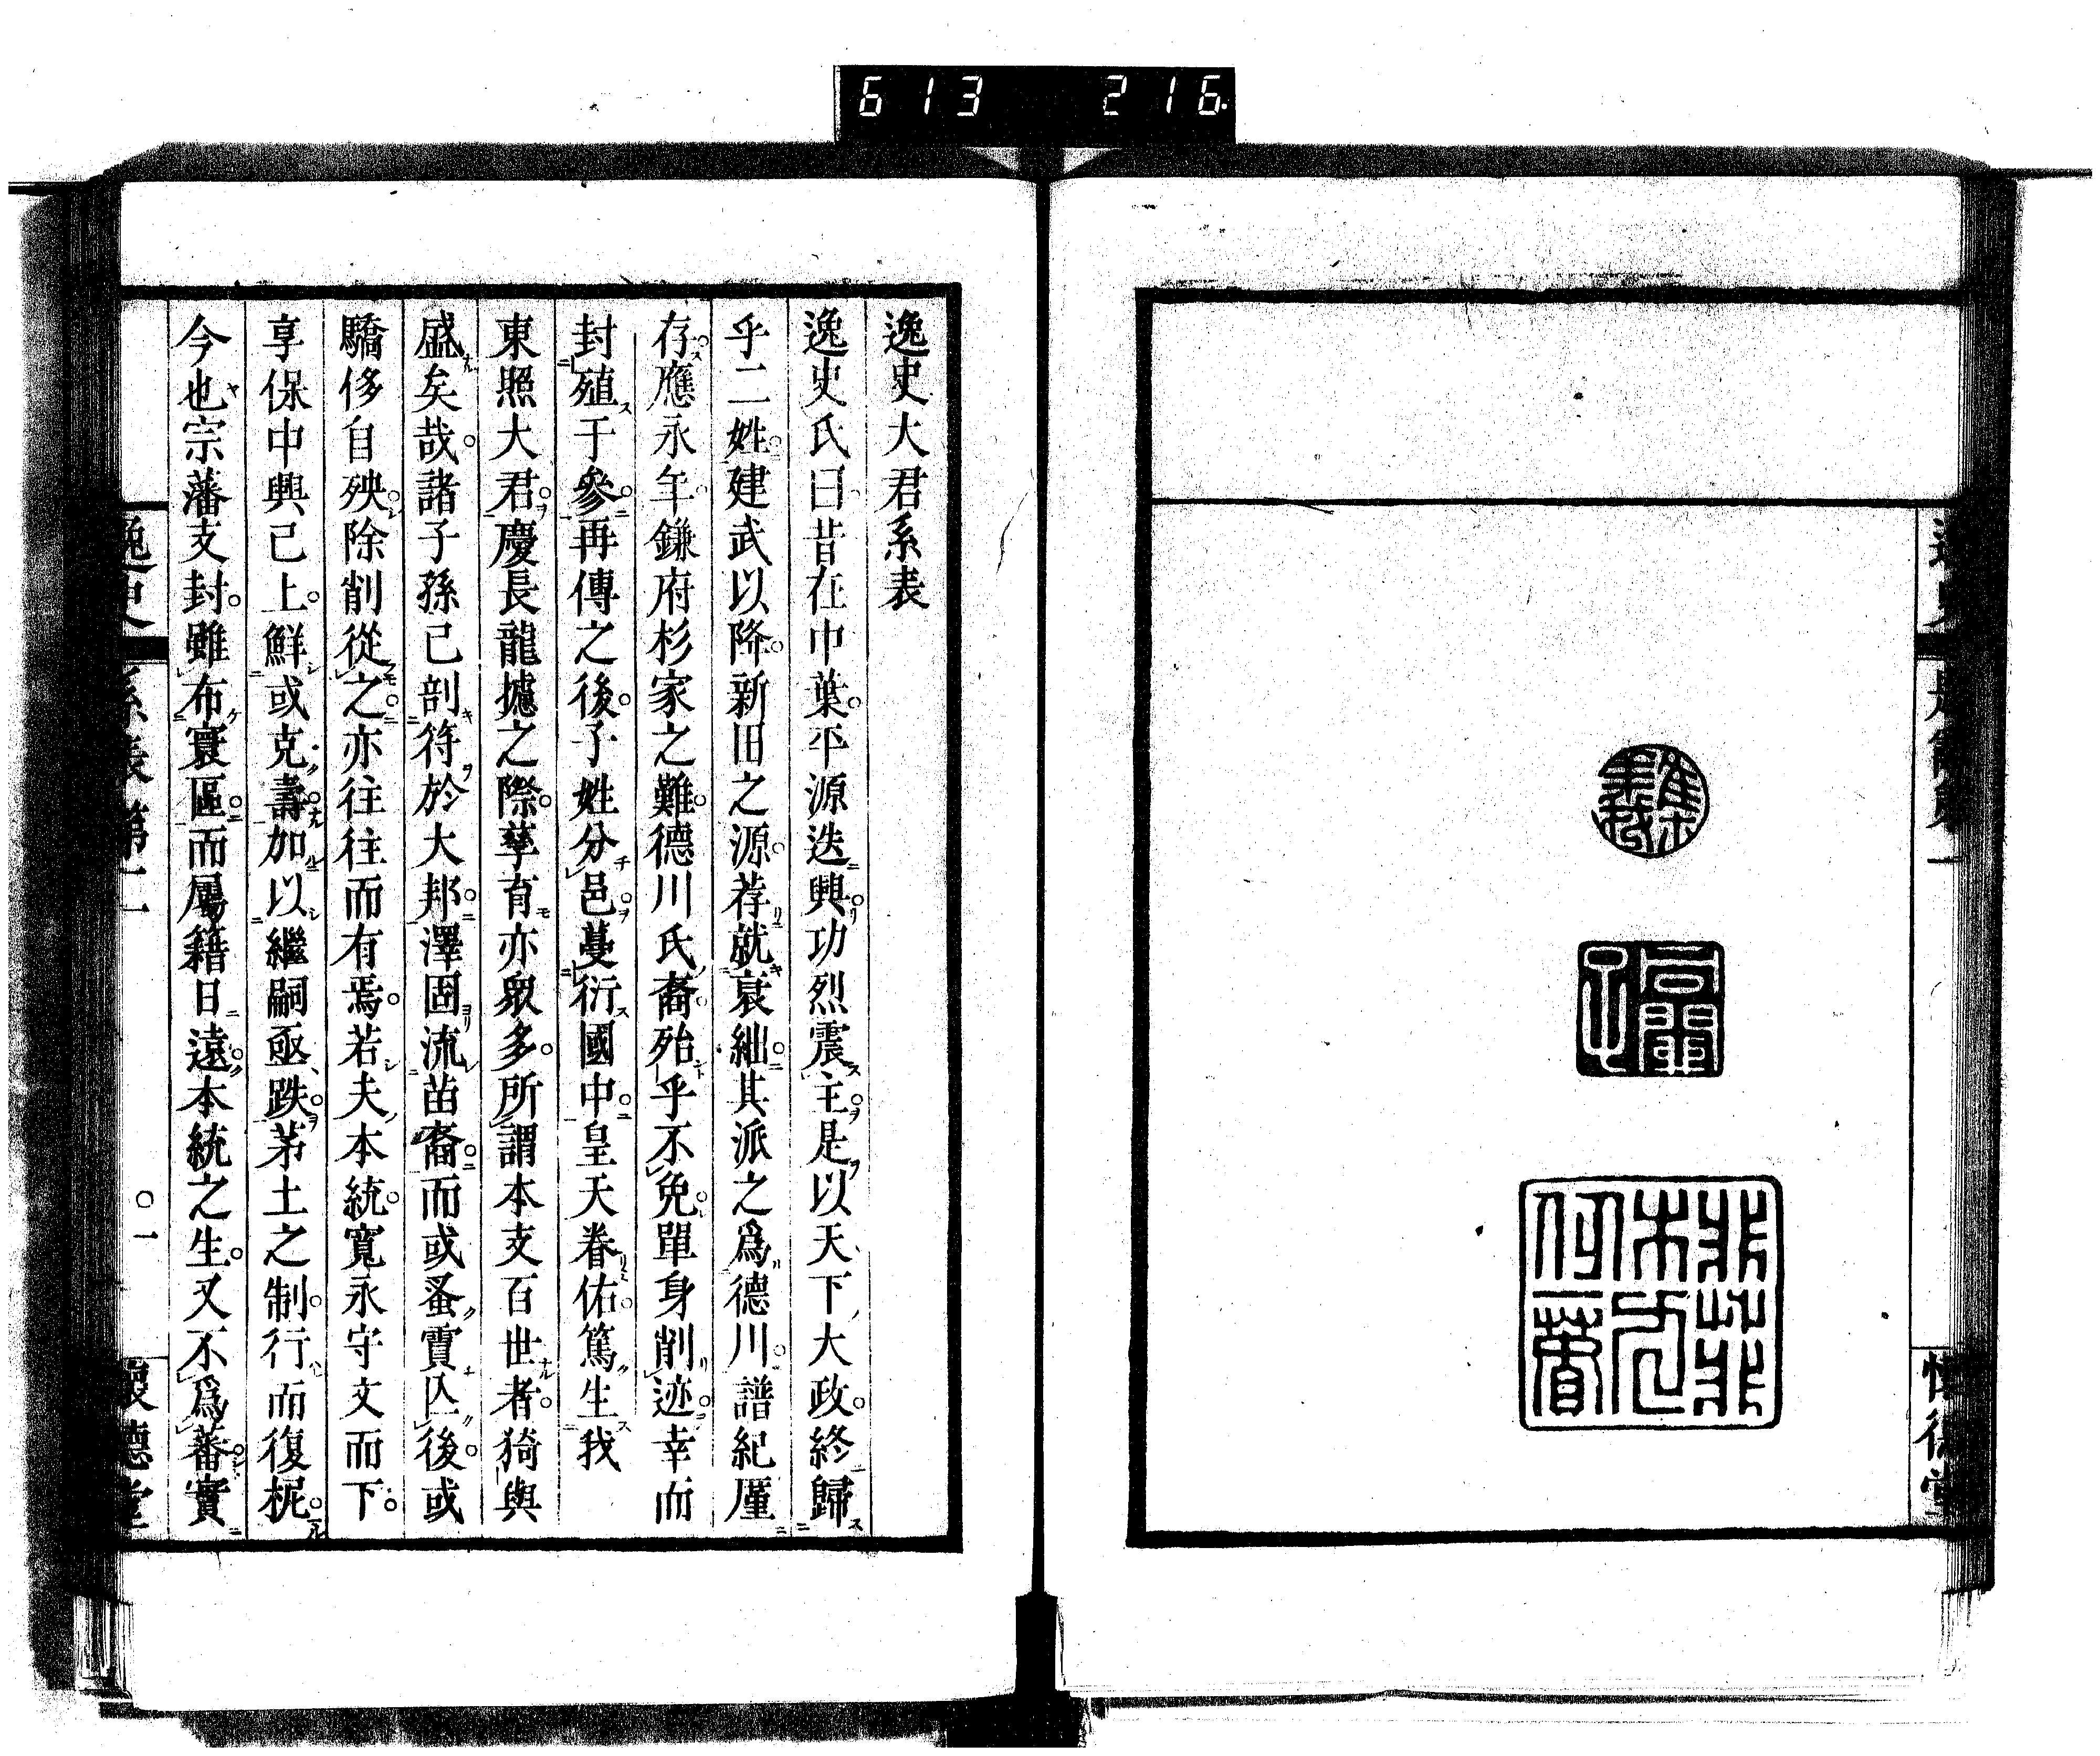 613 216
逸史大君系表
逸史氏曰昔在中葉平源迭興功烈震主是以天下大政終歸
乎二姓建武以降新旧之源荐就衰絀其派之爲德川譜紀厪
存應永年鎌府杉家之難德川氏裔殆乎不免單身削迹幸而
封殖于參再傳之後子姓分邑蔓衍國中皇天眷佑篤生我
東照大君慶長龍攄之際孳育亦衆多所謂本支百世者猗與
盛矣哉諸子孫已剖符於大邦澤固流苗裔而或蚤賈亾後或
驕侈自殃除削從之亦往往而有焉若夫本統寬永守文而下
享保中興已上鮮或克壽加以繼嗣亟跌茅土之制行而復柅
今也宗藩支封雖布寰區而屬籍日遠本統之生又不爲蕃實
逸史
系表第二
〇一
懷德堂
懷德堂